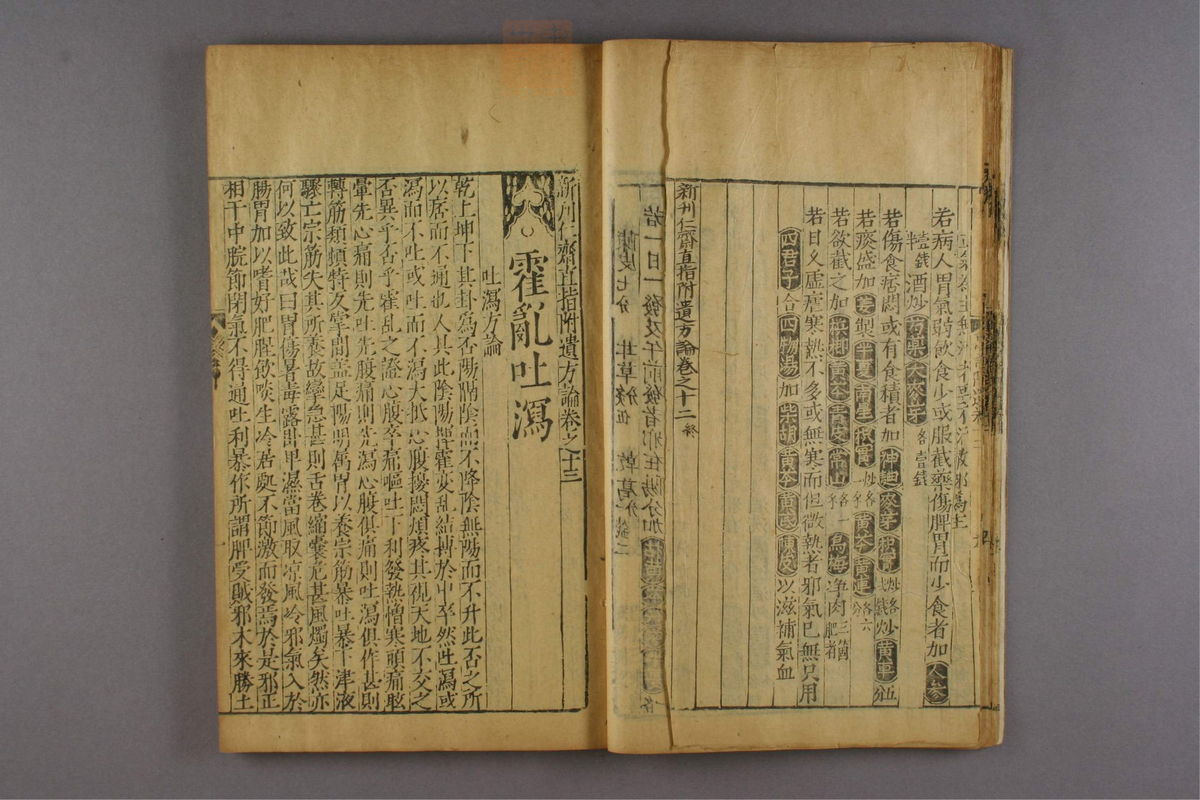 若病人胃氣弱飲食少或服截藥傷脾胃而少食者加人參
壹錢酒炒芍藥大麥芽各壹錢
半
若傷食痞悶或有食積者加神麯麥芽枳實炒各五分
若痰盛加姜製半夏南星枳實炒各一錢黃芩黃連各六分
若欲截之加檳榔黃芩青皮常山各一錢烏梅淨肉三箇肥者
若日久虛瘧寒熱不多或無寒而但微熱者邪氣已無只用
四君子合四物湯加柴胡黃芩黃芪陳皮以滋補氣血
新刊仁齋直指附遺方論卷之十二終
若一日一發及午前發者邪在陽分加
陳皮七分 甘草 乾葛
新刊仁齋直指附遺方論卷之十三
霍亂吐瀉
吐瀉方論
乾上坤下其卦為否陽隔陰而不降陰無陽而不升此否之所
以居而不通也人具此陰陽揮霍變亂結搏於中卒然吐瀉或
瀉而不吐或吐而不瀉大抵心腹擾悶煩疼其視天地不交之
否異乎否乎霍亂之證心腹卒痛嘔吐下利發熱憎寒頭痛眩
暈先心痛則先吐先腹痛則先瀉心腹俱痛則吐瀉俱作甚則
轉筋類頻特久掌間蓋足陽明屬胃以養宗筋暴吐暴下津液
驟亡宗筋失其所養故攣急甚則舌卷縮囊危甚風燭矣然亦
何以致此哉曰胃傷暑毒露臥卑濕當風取凉風冷邪氣入於
腸胃加以嗜好肥腥飲啖生冷居處不節激而發焉於是邪正
相干中脘節閉氣不得通吐利暴作所謂脾受賊邪木來勝土